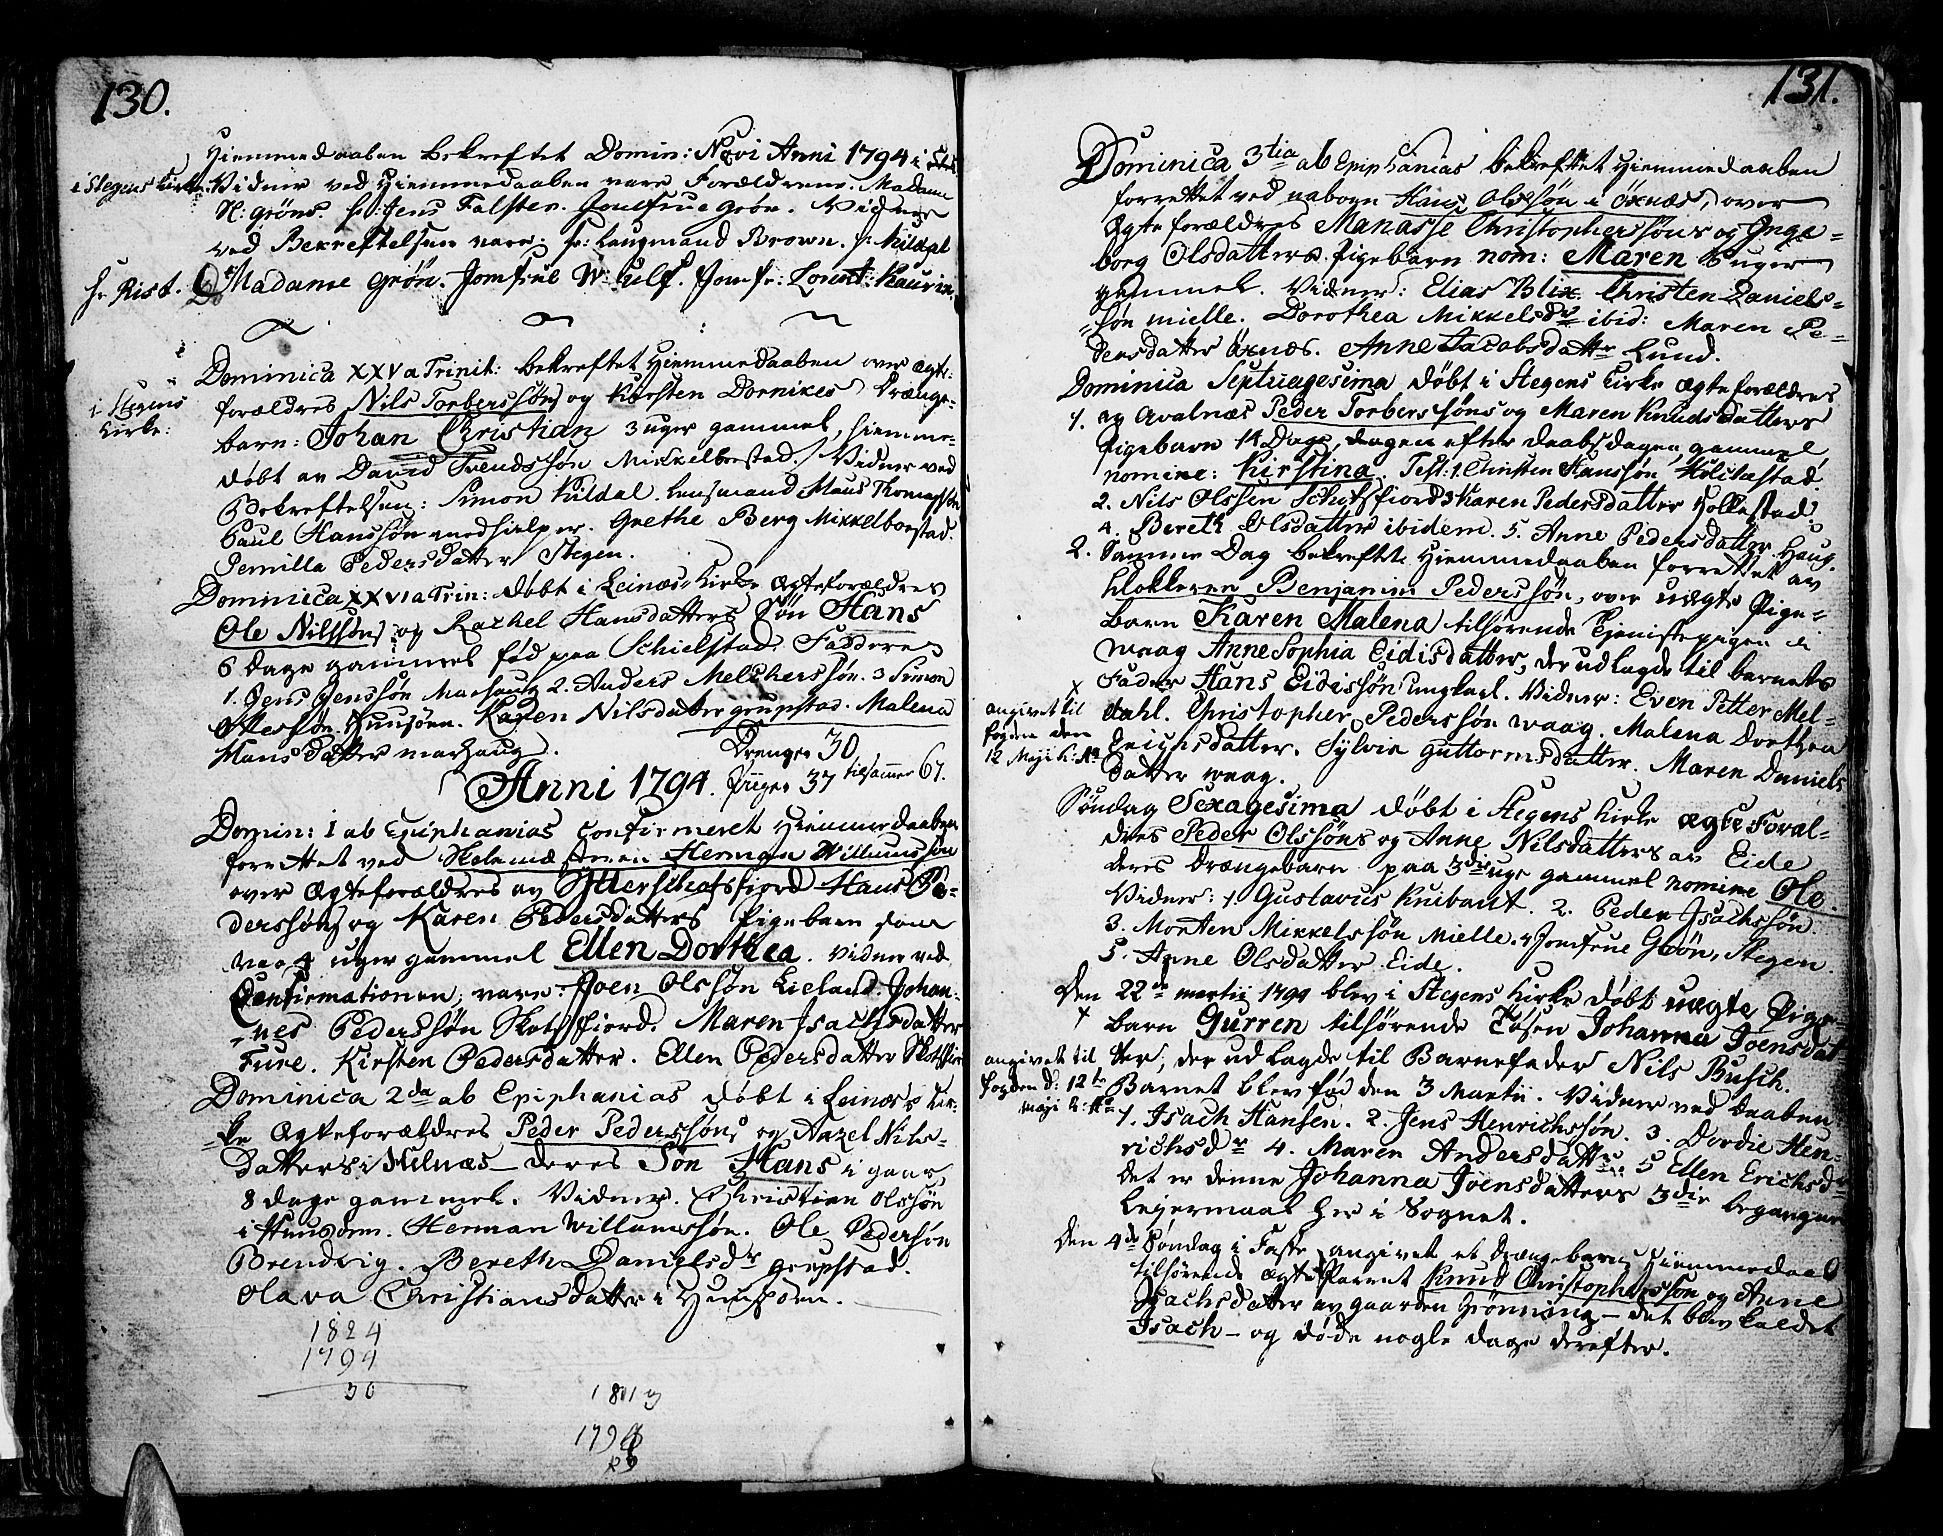 130.
Hiemmedaaben bekreftet Domin: Novi Anni 1794 i
i Stegens Kirke: Vidner ved Hiemmedaaben vare Forældrene. Madame
H: Grøns. hr: Jens Falster. Jomfrue Grøn. Vidner
ved Bekreftelsen vare: hr: Laugmand Brown. hr: Kildal
hr Rist. Madame Grøn. Jomfrue W: Culf. Jomfr: Kaurin.
Dominica XXV a Trinit: bekreftet Hiemmedaaben over Ægte-
i Stegens Kirke:
forældres Nils Torberssøns og Kirsten Dornikes Drænge-
barn: Johan Christian 3 uger gammel, hiemme-
døbt av David Trondssøn Mikkelborstad. Vidner ved
Bekreftelsen: Simon Kildal. Lensmand Claus Thomassøn
Paul Hanssøn medhielper. Grethe Berg Mikkelborstad.
Pernilla Pedersdatter Stegen.
Dominica XXVI a Trin: døbt i Leinæs Kirke Ægteforældres
Ole Nilssøns og Rachel Hansdatters Søn Hans
6 dage gammel fød paa Schielstad. Faddere
1. Jens Jenssøn Marhaug 2. Anders Melcherssøn. 3 Simon
Ollessøn Hunsøen. Karen Nilsdatter Grupstad. Malena
Hansdatter Marhaug. Drenger 30
Anni 1794. Piiger 37 tilsammen 67.
Domin: 1 ab Epiphanias Confirmeret Hiemmedaaben
forrettet ved Skolemæsteren Herman Willumssøn
over Ægteforældres av Ytterschotsfjord Hans Pe-
derssøns og Karen Pedersdatters Pigebarn som
var 4 uger gammel Ellen Dorthea. Vidner ved
Confirmationen, vare: Joen Olssøn Lieland. Johan-
nes Pederssøn Skotsfiord. Maren Isachsdatter
Fure. Kirsten Pedersdatter. Ellen Pedersdatter Skotsfior
Dominica 2da ab Epiphanias døbt i Leinæs Kir-
ke Ægteforældres Peder Pederssøns og Anzel Nils-
datters i Helnæs deres Søn Hans i gaar
8 dage gammel. Vidner. Christian Olssøn
i Hunsøen. Herman Willumssøn. Ole Pedersøn
Brendvig. Bereth Danielsdr Grupstad.
Olava Christiansdatter i Hunsøen.
1824
1794
30
1813
1794
131.
Dominica 3tia ab Epiphanias bekreftet Hiemmedaaben
forrettet ved naboen Hans Olssøn i Öxnæs, over
Ægteforældres Manasse Christopherssøns og Inge-
borg Olsdatters Pigebarn nom: Maren 6 uger
gammel. Vidner: Elias Blix. Christen Daniels-
søn Mielle. Dorothea Mikkelsdr ibid: Maren Pe-
dersdatter Öxnæs. Anne Jacobsdattr Lund.
Dominica Septuagesima døbt i Stegens Kirke Ægteforældres
1. av Avalnæs Peder Torberssøns og Maren Knudsdatters
Pigebarn 14 Dage, dagen efter daabsdagen gammel
nomine: Kirstina. Test: 1. Christen Hanssøn Holkestad
2. Nils Olssen Schotsfiord 3 Karen Pedersdatter Holkestad
4. Bereth Olsdatter ibidem. 5. Anne Pedersdatter Haug.
2. Samme Dag bekreftet Hiemmedaaben forrettet av
Klokkeren Benjamin Pederssøn, over uægte Pige-
barn Karen Malena tilhørende Tienistepigen i
Waag Anne Sophia Eidisdatter, der udlagde til barnets
Fader Hans Eidissøn ungkarl. Vidner: Even Petter Mel-
x angivet til fogden den 12 Maji
dahl. Christopher Pederssøn Waag. Malena Dorthea
Erichsdatter. Sylvia Guttormsdatter. Maren Daniels
datter Waag.
Søndag Sexagesima døbt i Stegens Kirke Ægte Foræl-
dres Peder Olssøns og Anne Nilsdatters av Eide
deres Drængebarn paa 3die uge gammel nomine Ole.
Vidner: 1. Gustavus Knibant. 2. Peder Isachssøn
3. Morten Mikkelssøn Mielle. 4 Jomfrue Grøn, Stegen.
5. Anne Olsdatter Eide.
Den 22de Martii 1794 blev i Stegens Kirke døbt uægte Pige-
x barn Gurren tilhørende Tøsen Johanna Joensdat
angivet til fogden d: 12te Maji
ter, der udlagde til Barnefader Nils Busch.
Barnet blev fød den 3 Martii. Vidner ved daaben
1. Isach Hansen. 2. Jens Henrichssøn. 3. Dordie Hen-
richsdr 4. Maren Andersdattr 5 Ellen Erichsdr
det er denne Johanna Joensdatters 3die begangne
Leiermaal her i Sognet.
Den 4de Søndag i Faste angivet et Drængebarns Hiemmedaab
tilhørende Ægte Parret Knud Christopherssøn og Anne
Isachsdatter av gaarden Grønning — det blev kaldet
Isach — og døde nogle dage derefter.